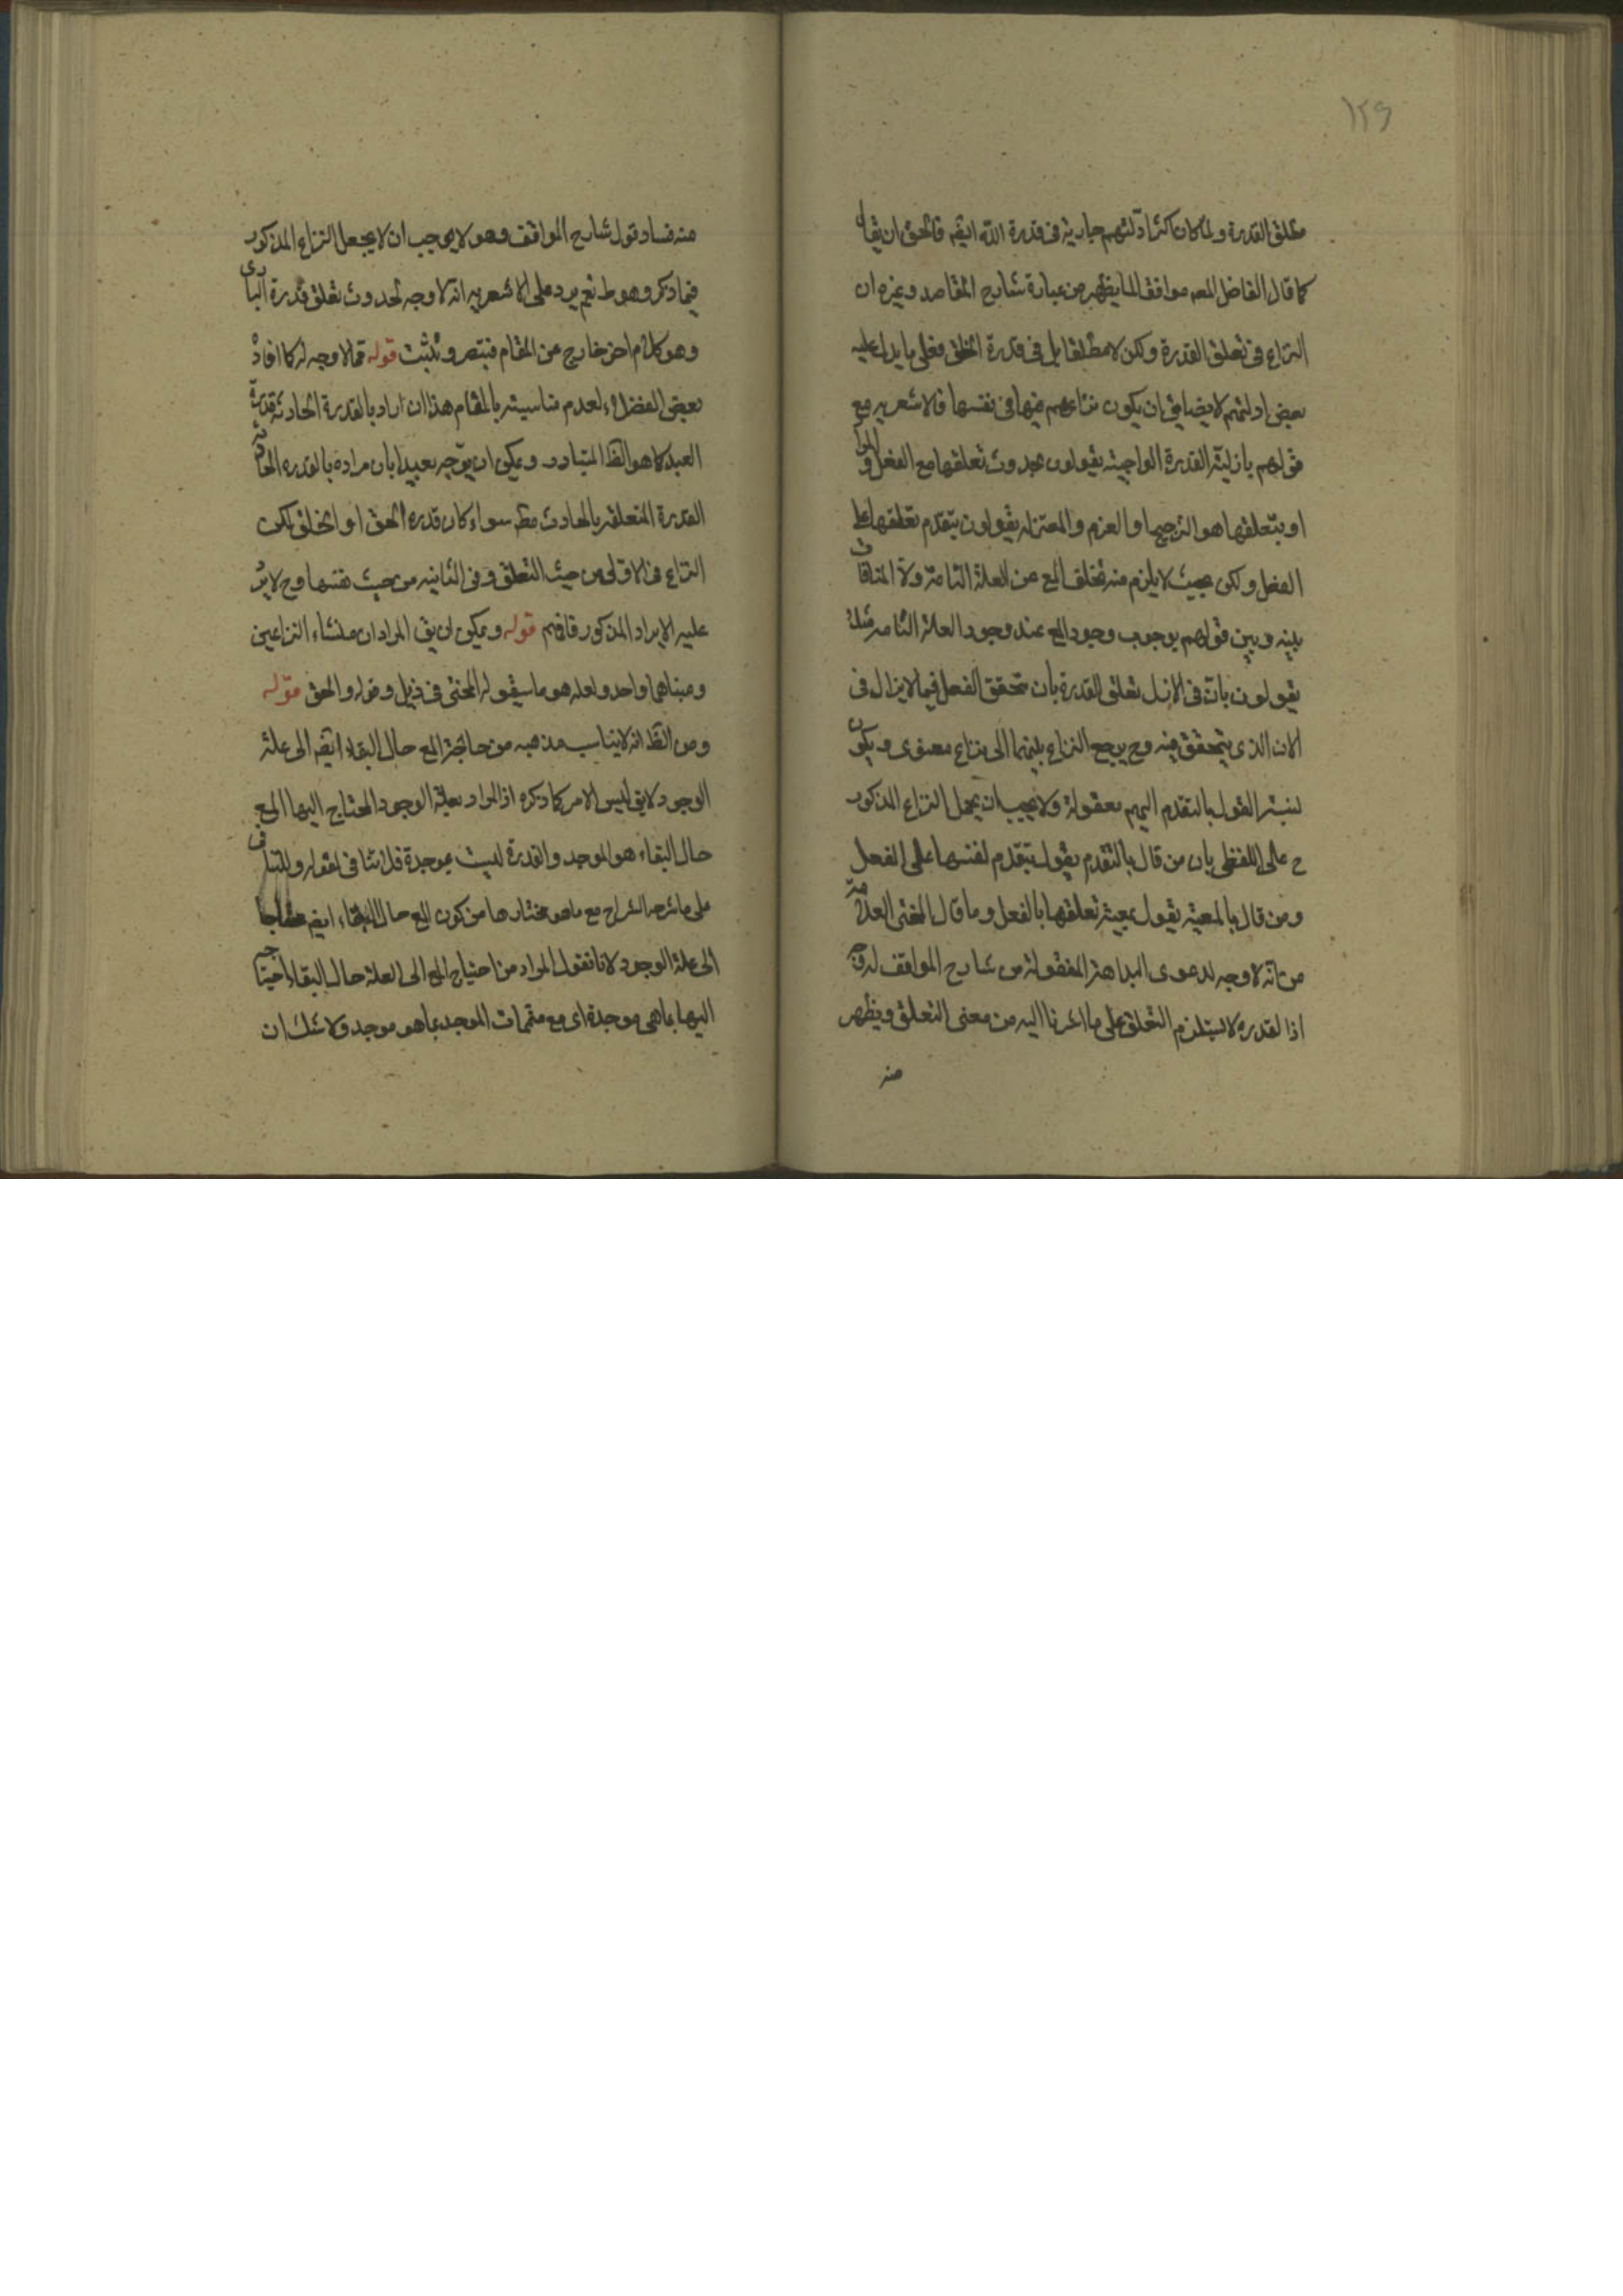 ١٢٩
مطلق القدرة ولما كان اكثر ادلتهم جارية فى قدرة الله ايضم فالحق ان يقال
كما قال الفاضل المعه موافقا لما يظهر من عبارة شارح المقاصد وغيره ان
النزاع فى تعلق القدرة ولكن لا مطلقا بل فى قدرة الخلق فعلى ما يدل عليه
بعض ادلتهم لا يضايق ان يكون نزاعهم فيها فى نفسها فالاشعريه مع
قولهم بازلية القدرة الواجبية يقولون بحدوث تعلقها مع الفعل و
او بتعلقها هو الترجيح او العزم والمعتزله يقولون بتقدم تعلقها على
الفعل ولكن بحيث لا يلزم منه تخلف المع عن العلة التامة ولا المنافات
بينه وبين قولهم بوجوب وجود المع عند وجود العلة التامه مثلا
يقولون بان فى الازل تعلق القدرة بان تحقق الفعل فيما لا يزال فى
الان الذى يتحقق فيه وح يرجع النزاع بينهما الى نزاع معنوى ويكون
نسبة القول بالتقدم اليهم معقولة ولا يجب ان يحمل النزاع المذكور
ح على اللفظى بان من قال بالتقدم يقول بتقدم نفسها على الفعل
ومن قال بالمعية يقول بمعية تعلقها بالفعل وما قال المحشى العلامة
من انه لا وجه لدعوى البداهة المنقولة من شارح المواقف له
اذ القدره لا يستلزم التعلق على ما اشرنا اليه من معنى التعلق ويظهر
منه
منه فساد قول شارح المواقف وهو لا يوجب ان لا يجعل النزاع المذكور
فيما ذكر وهو ط نعم يرد على الاشعريه انه لا وجه لحدوث تعلق قدرة البارى
وهو كلام اخر خارج عن المقام فتبصر وتثبت قوله فمما لا وجه له كما افاد
بعض الفضلاء لعدم مناسبته بالمقام هذا ان اراد بالقدرة الحادثة قدرة
العبد كما هو الظ المتبادر ويمكن ان يوجه بعيدا بان مراده بالقدره الحادثة
القدرة المتعلقه بالحادث مط سواء كان قدره الحق او الخلق لكن
النزاع فى الاولى من حيث التعلق وفى الثانيه من حيث نفسها وح لا يرد
عليه الايراد المذكور فافهم قوله ويمكن ان يق المراد ان منشاء النزاعين
ومبناهما واحد ولعله هو ما سيقوله المحشى فى ذيل وقوله والحق قوله
ومن الظ انه لا يناسب مذهبه من حاجة المع حال البقاء ايضم الى علة
الوجود لا يق ليس الامر كما ذكره اذ المراد بعلة الوجود المحتاج اليها المع
حال البقاء هو الموجد والقدرة ليست بموجدة فلا تنافى لقوله
على ما شرحه الشراح مع ما هو مختارها من كون المع حال البقاء ايضم محتاجا
الى علة الوجود لانا نقول المراد من احتياج المع الى العلة حال البقاء احتياجه
اليها بما هى موجدة اى مع متممات الموجد بما هو موجد ولا شك ان